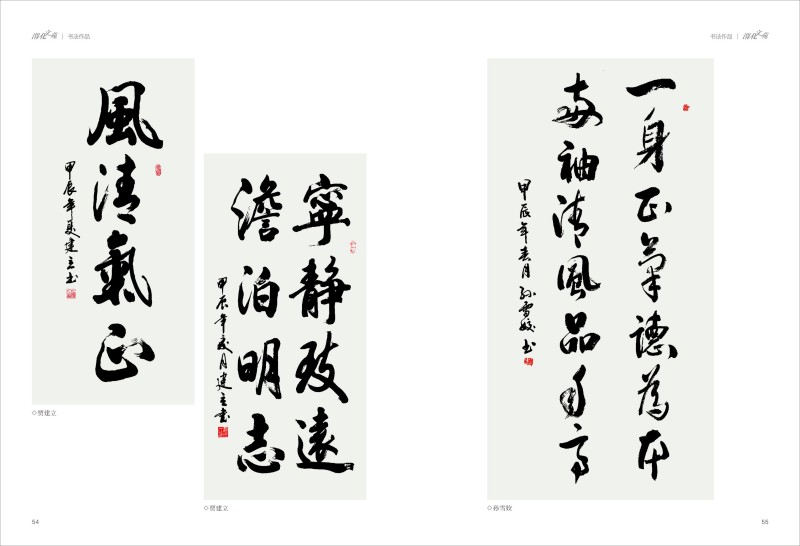 书法作品
書法作品
風清氣正
甲辰年夏建立书
◇贾建立
寧靜致遠
澹泊明志
甲辰年夏月建立書
◇贾建立
一身正氣德為本
两袖清風品自高
甲辰年春月孙雪姣书
◇孙雪姣
54
55